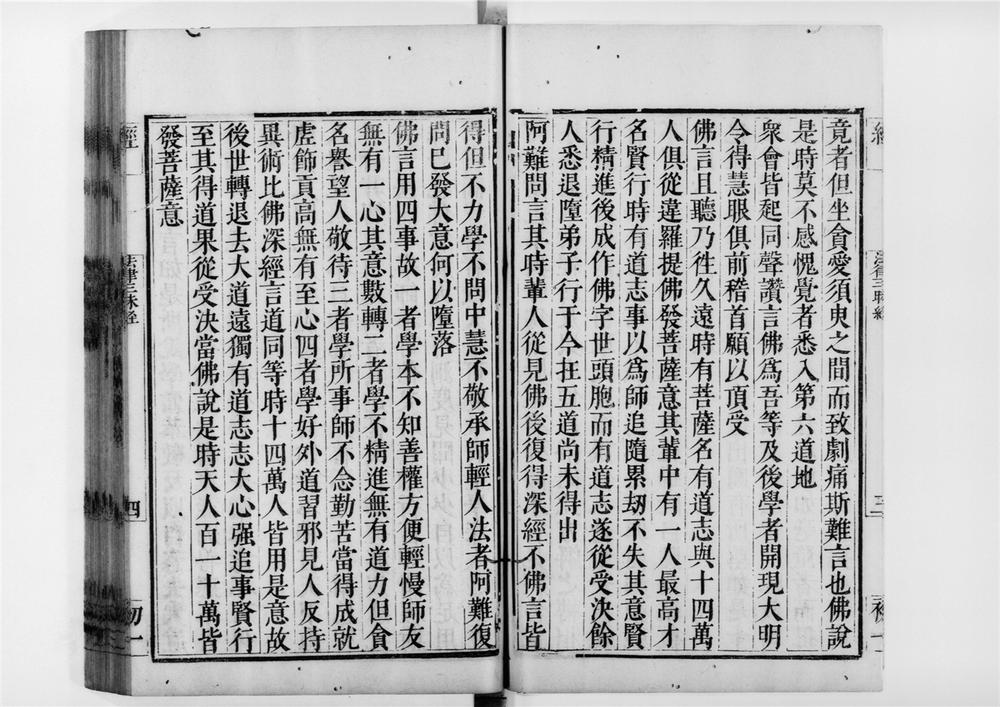 竟者但坐貪愛須臾之間而致劇痛斯難言也佛說
是時莫不感愧覺者悉入第六道地
衆會皆起同聲讚言佛爲吾等及後學者開現大明
令得慧眼俱前稽首願以頂受
佛言且聽乃徃久遠時有菩薩名有道志與十四萬
人俱從違羅提佛發菩薩意其輩中有一人最高才
名賢行時有道志事以爲師追隨累劫不失其意賢
行精進後成作佛字世頭胞而有道志遂從受決餘
人悉退墮弟子行于今在五道尚未得出
阿難問言其時輩人從見佛後復得深經不佛言皆
得但不力學不問中慧不敬承師輕人法者阿難復
問已發大意何以墮落
佛言用四事故一者學本不知善權方便輕慢師友
無有一心其意數轉二者學不精進無有道力但貪
名譽望人敬待三者學所事師不念勤苦當得成就
虛飾貢高無有至心四者學好外道習邪見人反持
異術比佛深經言道同等時十四萬人皆用是意故
後世轉退去大道遠獨有道志志大心强追事賢行
至其得道果從受決當佛說是時天人百一十萬皆
發菩薩意
經
法律三昧經
四
初一